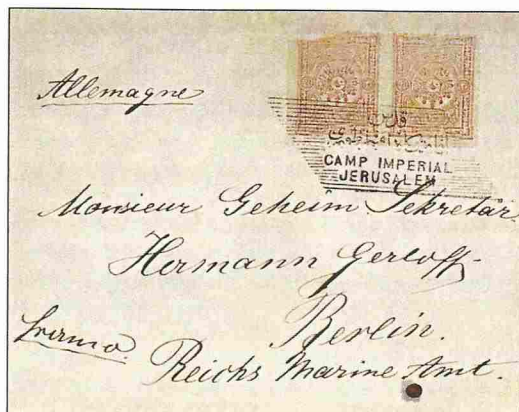 Allemagne
قدس
CAMP IMPERIAL
JERUSALEM
Monsieur Geheim Sekretär
Hermann Gerloff
Berlin.
Franco.
Reichs Marine Amt.